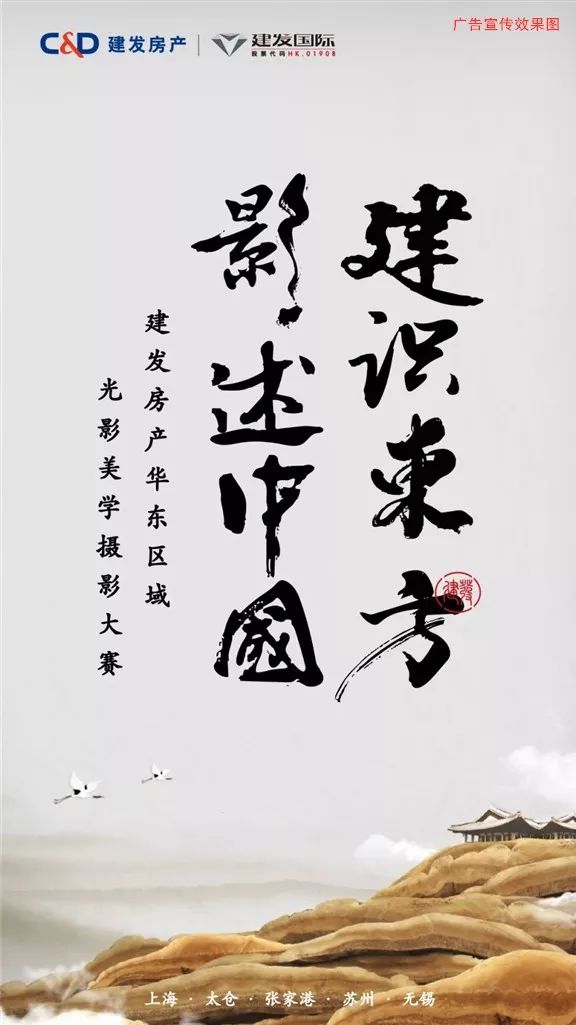 C&D 建发房产 | 建发国际
股票代码HK.01908
广告宣传效果图
建识東方
影述中國
建发房产华东区域
光影美学摄影大赛
建發
上海·太仓·张家港·苏州·无锡